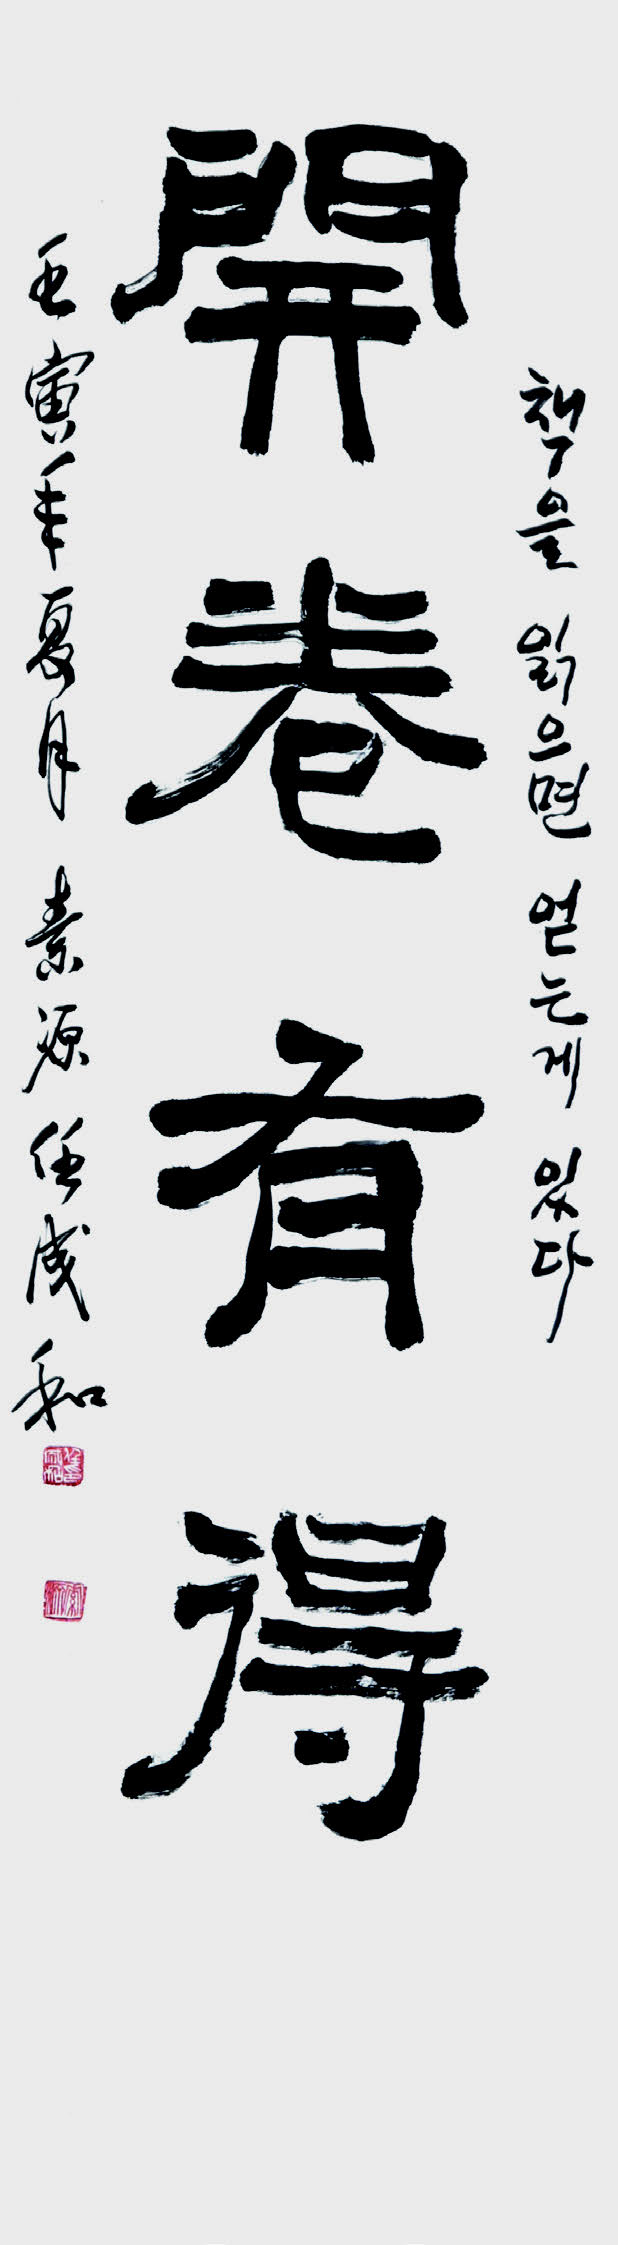 책을 읽으면 얻는게 있다
開卷有得
壬寅年夏月 素源 任成和